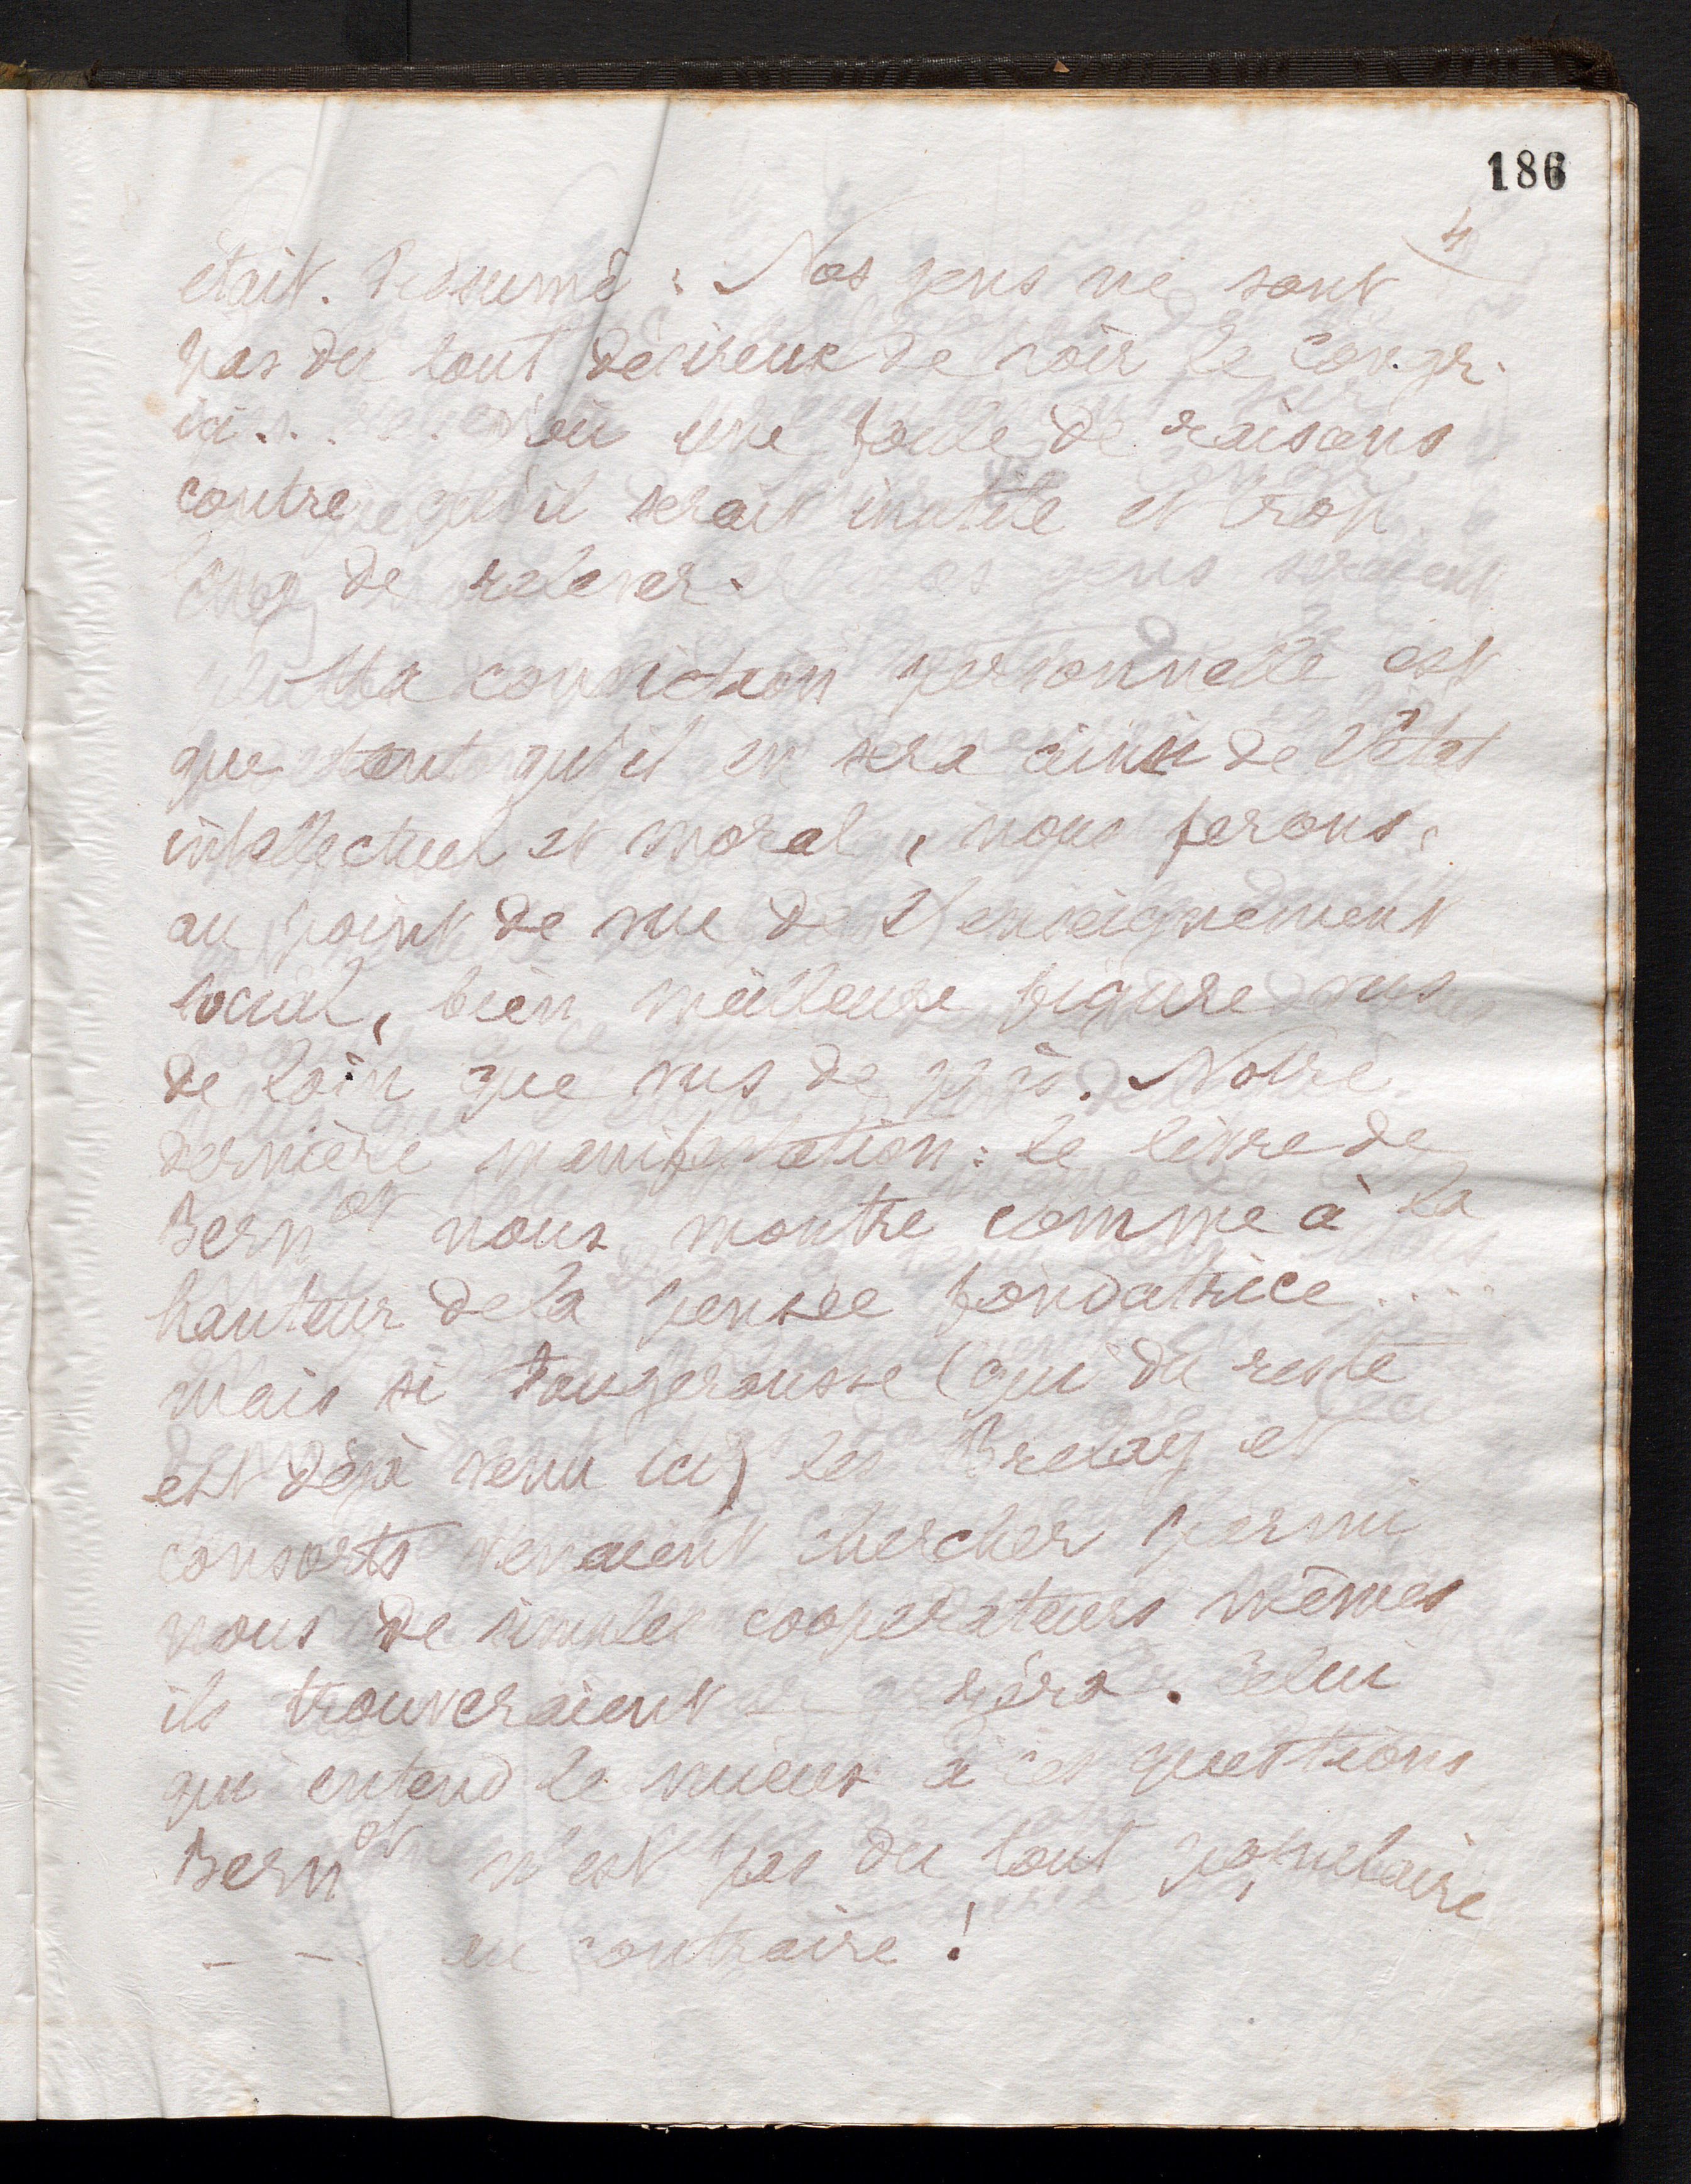 186
4
était. Résumé : Nos gens ne sont
pas du tout désireux de voir le Congr.
ici . . . . d'où une foule de raisons
contre qu'il serait inutile et trop
long de relever.
Ma conviction personnelle est
que tant qu'il en sera ainsi de l'état
intellectuel et moral, nous ferons,
au point de vue de l'enseignement
social, bien meilleure figure vus
de loin que vus de près. Notre
dernière manifestation : le livre de
Bernot nous montre comme à la
hauteur de la pensée fondatrice ....
mais si Fougerousse (qui du reste
est déjà venu ici) les Brelay et
consorts venaient chercher parmi
nous de simples coopérateurs mêmes
ils trouveraient zéro. Celui
qui entend le mieux à ces questions
Bernot n'est pas du tout populaire
_ _ . au contraire !